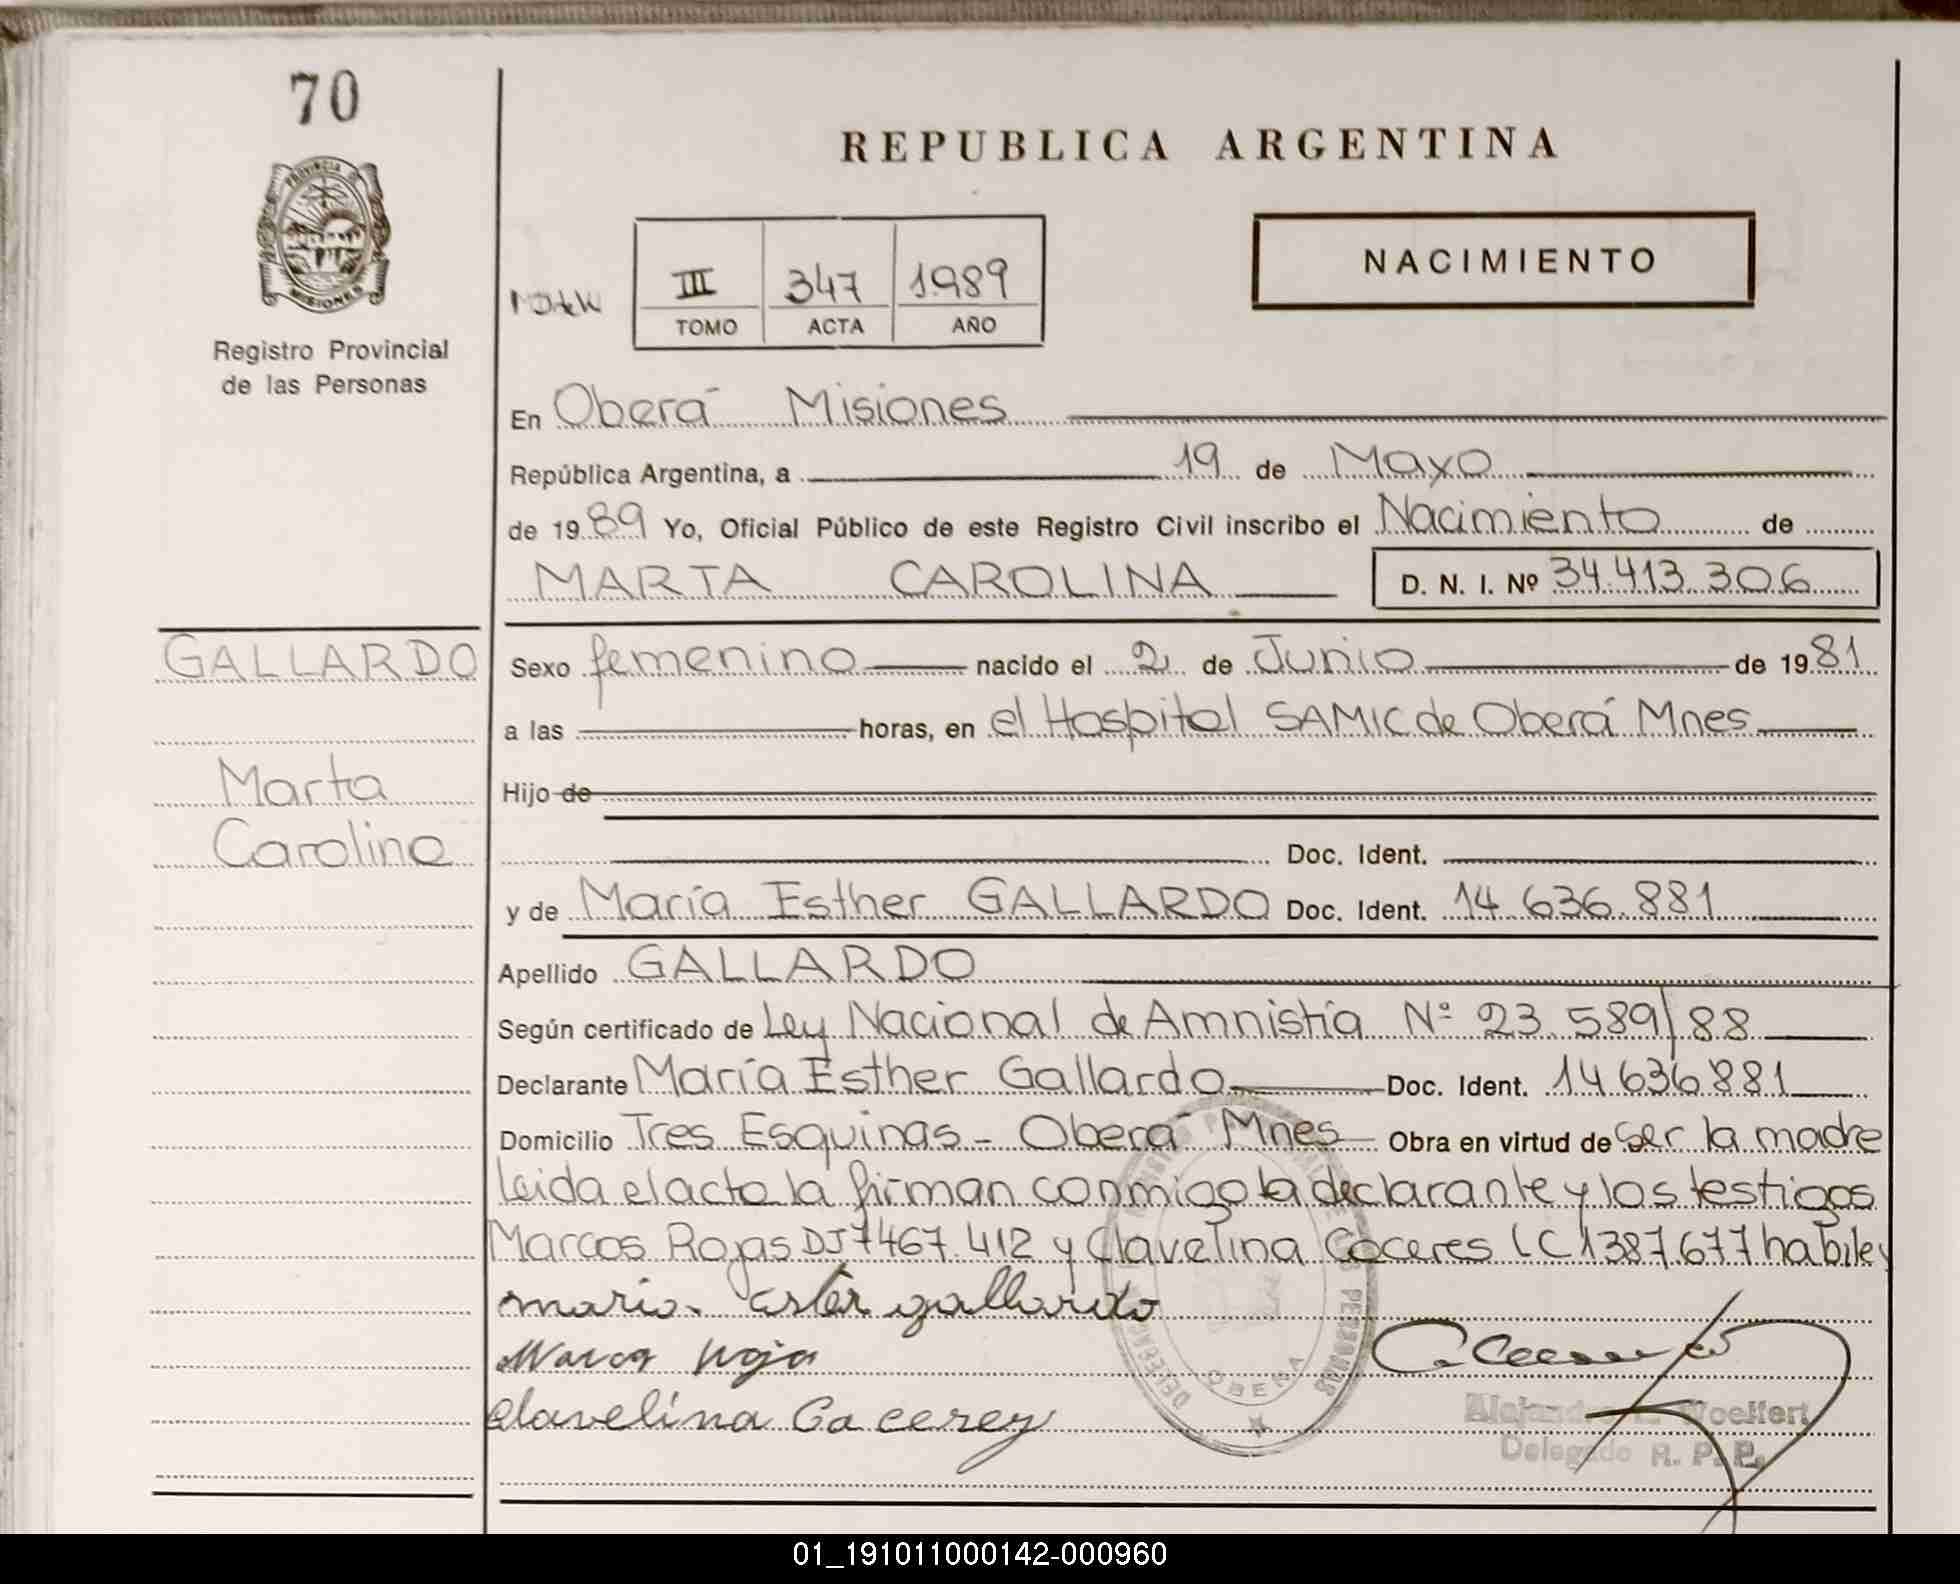 70
REPUBLICA ARGENTINA
PROVINCIA DE
MISIONES
NACIMIENTO
III 347 1989
TOMO ACTA AÑO
Registro Provincial
de las Personas
En Oberá Misiones
República Argentina, a 19 de Mayo
de 1989 Yo, Oficial Público de este Registro Civil inscribo el Nacimiento de
MARTA CAROLINA D. N. I. Nº 34.413.306
GALLARDO
Marta
Carolina
Sexo femenino nacido el 2 de Junio de 1981
a las horas, en el Hospital SAMIC de Oberá Mnes
Hijo de
Doc. Ident.
y de María Esther GALLARDO Doc. Ident. 14.636.881
Apellido GALLARDO
Según certificado de Ley Nacional de Amnistía Nº 23.589/88
Declarante María Esther Gallardo Doc. Ident. 14.636.881
Domicilio Tres Esquinas - Oberá Mnes Obra en virtud de ser la madre
Leida el acta la firman conmigo la declarante y los testigos
Marcos Rojas DJ 7467.412 y Clavelina Caceres LC 1387.677 habiles
maria Ester gallardo
Marcos Roja
Clavelina Cacerez
OBERA
Alejandro Woelfert
Delegado R. P. P.
01_191011000142-000960